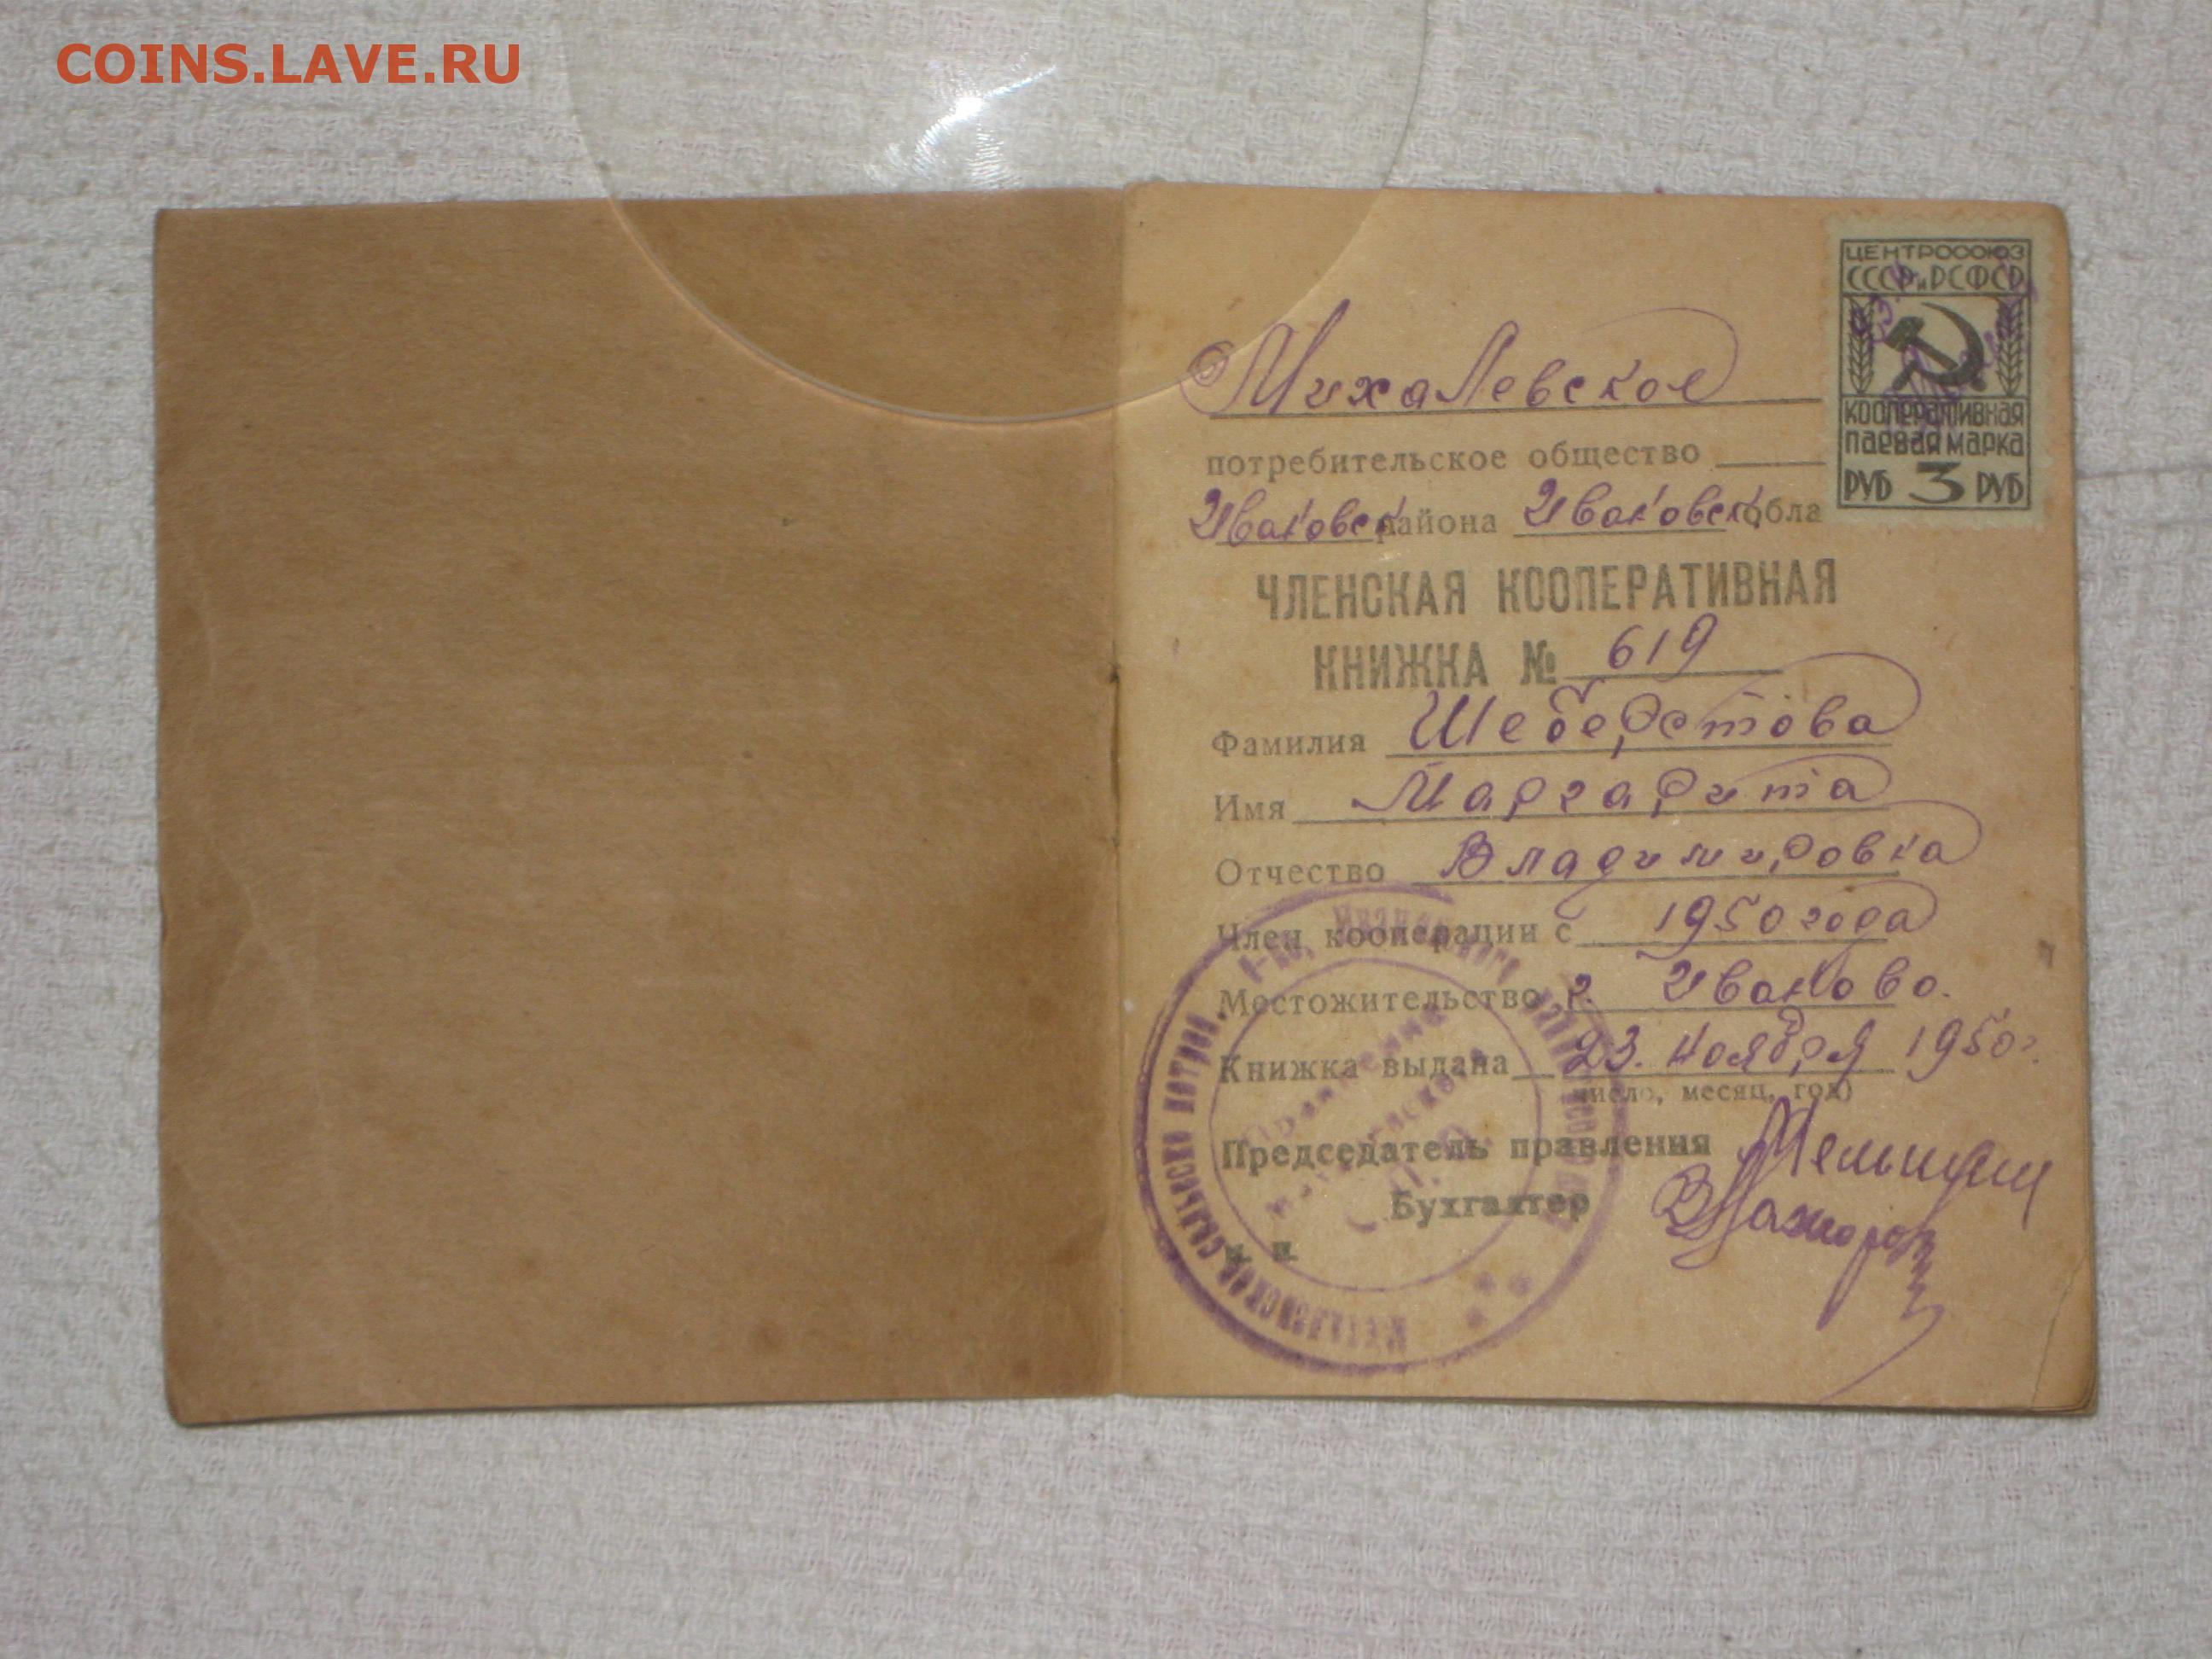 COINS.LAVE.RU
ЦЕНТРОСОЮЗ
СССР и РСФСР
КООПЕРАТИВНАЯ
ПАЕВАЯ МАРКА
РУБ 3 РУБ
Михалевское
потребительское общество
Ивановск района Ивановск обла
ЧЛЕНСКАЯ КООПЕРАТИВНАЯ
КНИЖКА № 619
Фамилия Шеберстова
Имя Маргарита
Отчество Владимировна
Член кооперации с 1950 года
Местожительство г. Иваново.
Книжка выдана 23. ноября 1950г.
число, месяц, год)
Председатель правления
Бухгалтер